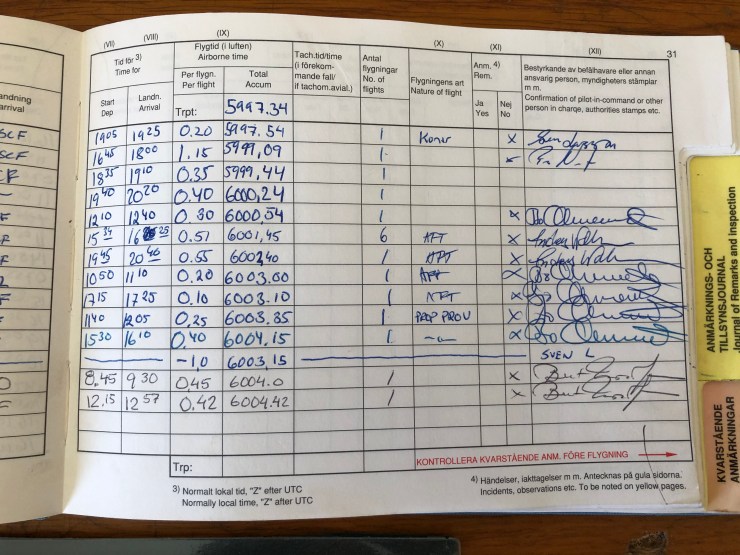 31
(VII) (VIII) (IX) (X) (XI) (XII)
Tid för 3)
Time for
Flygtid (i luften)
Airborne time
Tach.tid/time
(i förekom-
mande fall/
if tachom.avial.)
Antal
flygningar
No. of
flights
Flygningens art
Nature of flight
Anm. 4)
Rem.
Bestyrkande av befälhavare eller annan
ansvarig person, myndigheters stämplar
m m.
Confirmation of pilot-in-command or other
person in charge, authorities stamps etc.
Landning
arrival
Start
Dep
Landn.
Arrival
Per flygn.
Per flight
Total
Accum
Ja
Yes
Nej
No
Trpt: 5997.34
SCF 1905 1925 0.20 5997.54 1 x
SCF 1645 1800 1.15 5999,09 1
1835 1910 0.35 5999,44 1
1940 2020 0.40 6000,24 1
1210 1240 0 30 6000,54 1 x
1534 1625 0.51 6001,45 6 AFT x
1945 2040 0.55 600240 1 AFT x
1050 1110 0.20 6003.00 1 AFT x
1715 1725 0.10 6003.10 1 AFT x
1140 1205 0,25 6003.35 1 PROP PROV x
1530 1610 0,40 6004.15 1 x
-1,0 6003,15 SVEN L
8.45 9 30 0,45 6004.0 1 x
12.15 12 57 0.42 6004.42 1 x
Trp:
KONTROLLERA KVARSTÅENDE ANM. FÖRE FLYGNING
3) Normalt lokal tid, "Z" efter UTC
Normally local time, "Z" after UTC
4) Händelser, iakttagelser m m. Antecknas på gula sidorna.
Incidents, observations etc. To be noted on yellow pages.
ANMÄRKNINGS- OCH
TILLSYNSJOURNAL
Journal of Remarks and inspection
KVARSTÅENDE
ANMÄRKNINGAR